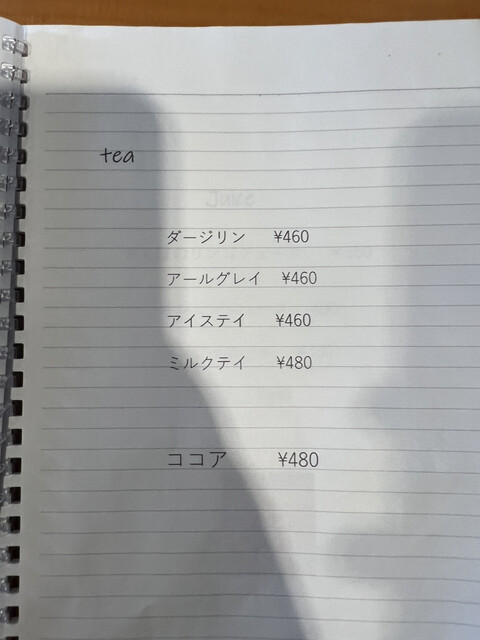 tea
ダージリン ¥460
アールグレイ ¥460
アイステイ ¥460
ミルクテイ ¥480
ココア ¥480